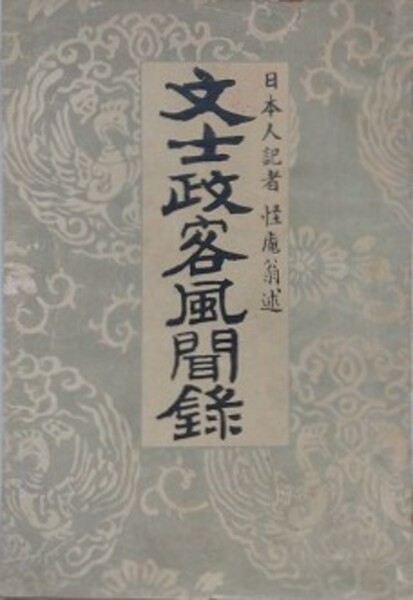 日本人記者 怪庵翁述
文士政客風聞錄